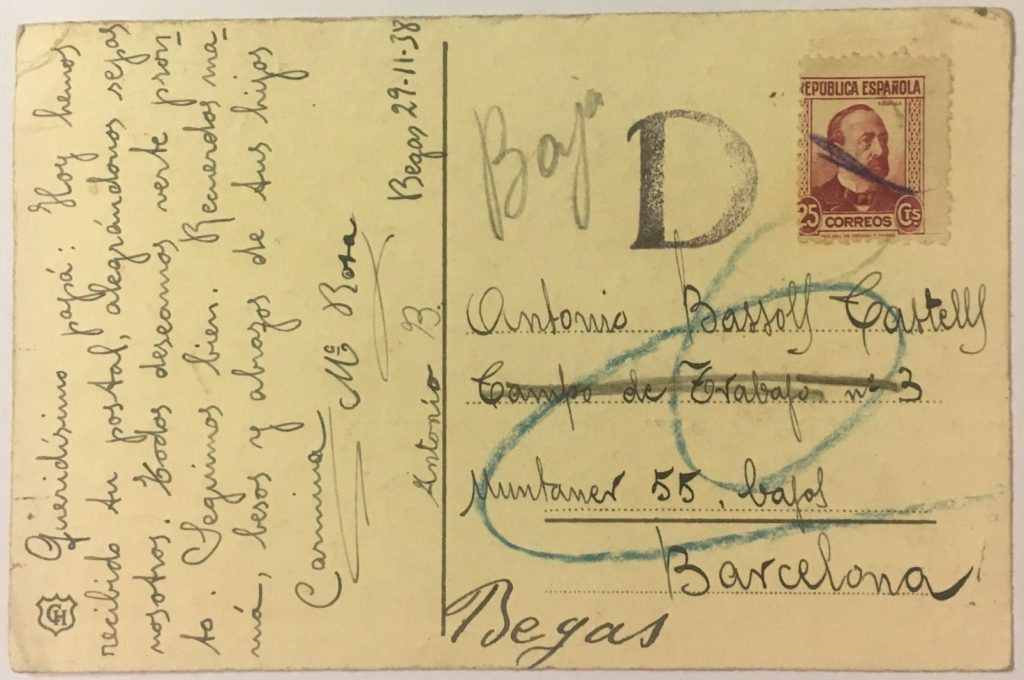 Begas 29-11-38
Queridísimo papá: Hoy hemos
recibido tu postal, alegrándonos sejas
nosotros. Todos deseamos verte pron-
to. Seguimos bien. Recuerdos ma-
má, besos y abrazos de tus hijos
Carmina Mª Rosa
Antonio B.
Baja
D
REPÚBLICA ESPAÑOLA
25 CORREOS Cts
Antonio Bassols Castells
Campo de Trabajo nº 3
Muntaner 55, bajos
Barcelona
Begas
CH